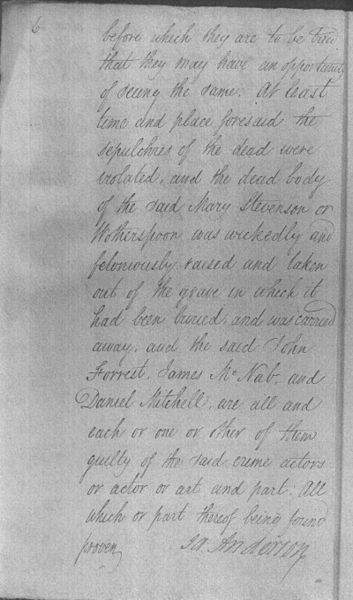 6
before which they are to be tried
that they may have an opportunity
of seeing the same. At least
time and place foresaid the
sepulchres of the dead were
violated, and the dead body
of the said Mary Stevenson or
Wotherspoon was wickedly and
feloniously raised and taken
out of the grave in which it
had been buried, and was carried
away, and the said John
Forrest, James McNab, and
Daniel Mitchell, are all and
each or one or other of them
guilty of the said crime actors
or actor or art and part. All
which or part thereof being found
proven
Ja. Anderson